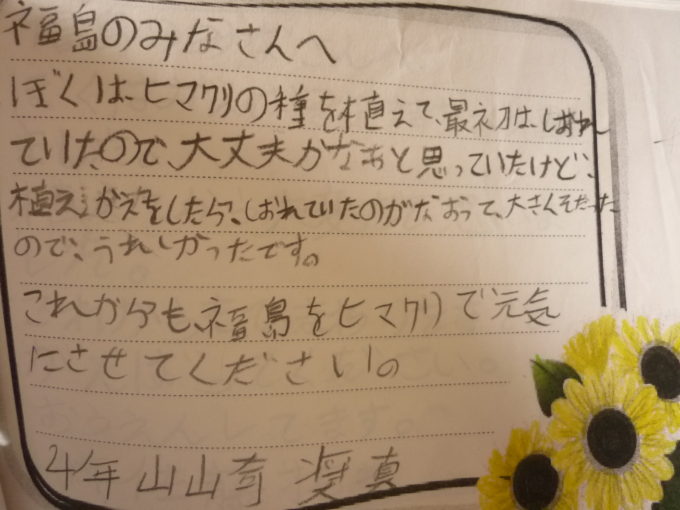 福島のみなさんへ
ぼくは、ヒマワリの種を植えて、最初はしおれ
ていたので、大丈夫かなあと思っていたけど、
植えかえをしたら、しおれていたのがなおって、大きくそだった
ので、うれしかったです。
これからも、福島をヒマワリで元気
にさせてください。
4年 山崎 奨真